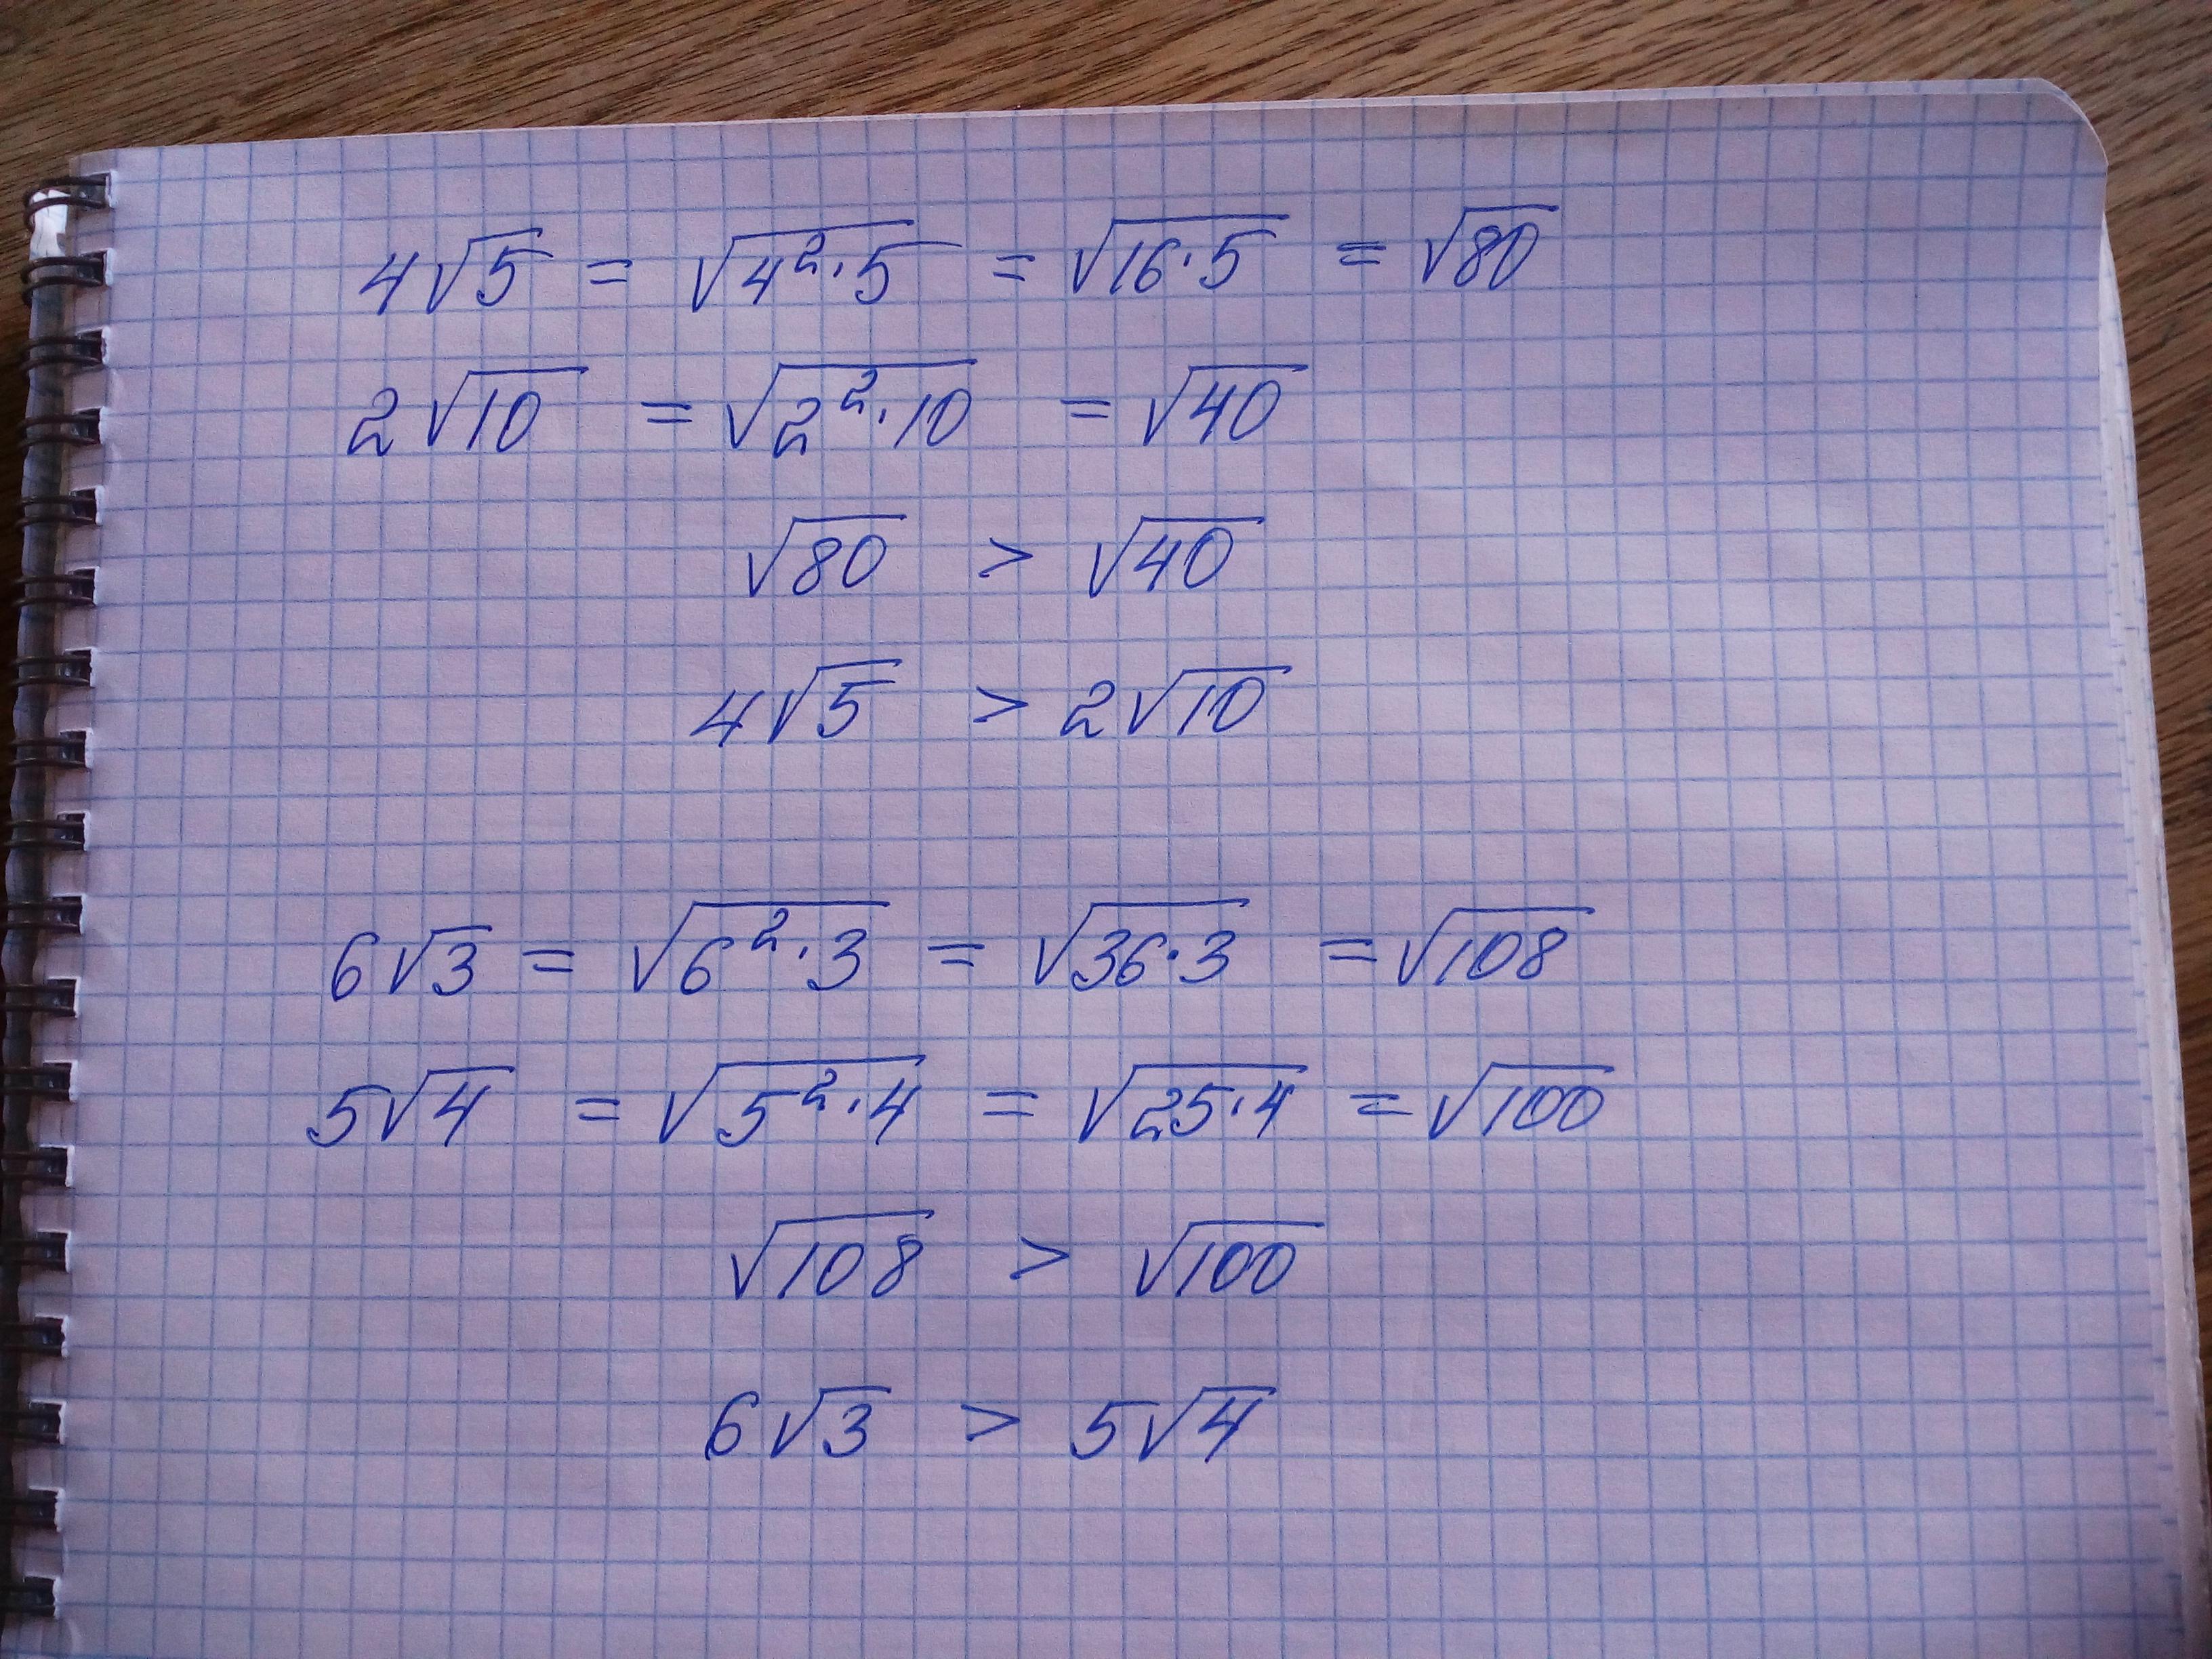 4√5 = √4²·5 = √16·5 = √80
2√10 = √2²·10 = √40
√80 > √40
4√5 > 2√10
6√3 = √6²·3 = √36·3 = √108
5√4 = √5²·4 = √25·4 = √100
√108 > √100
6√3 > 5√4